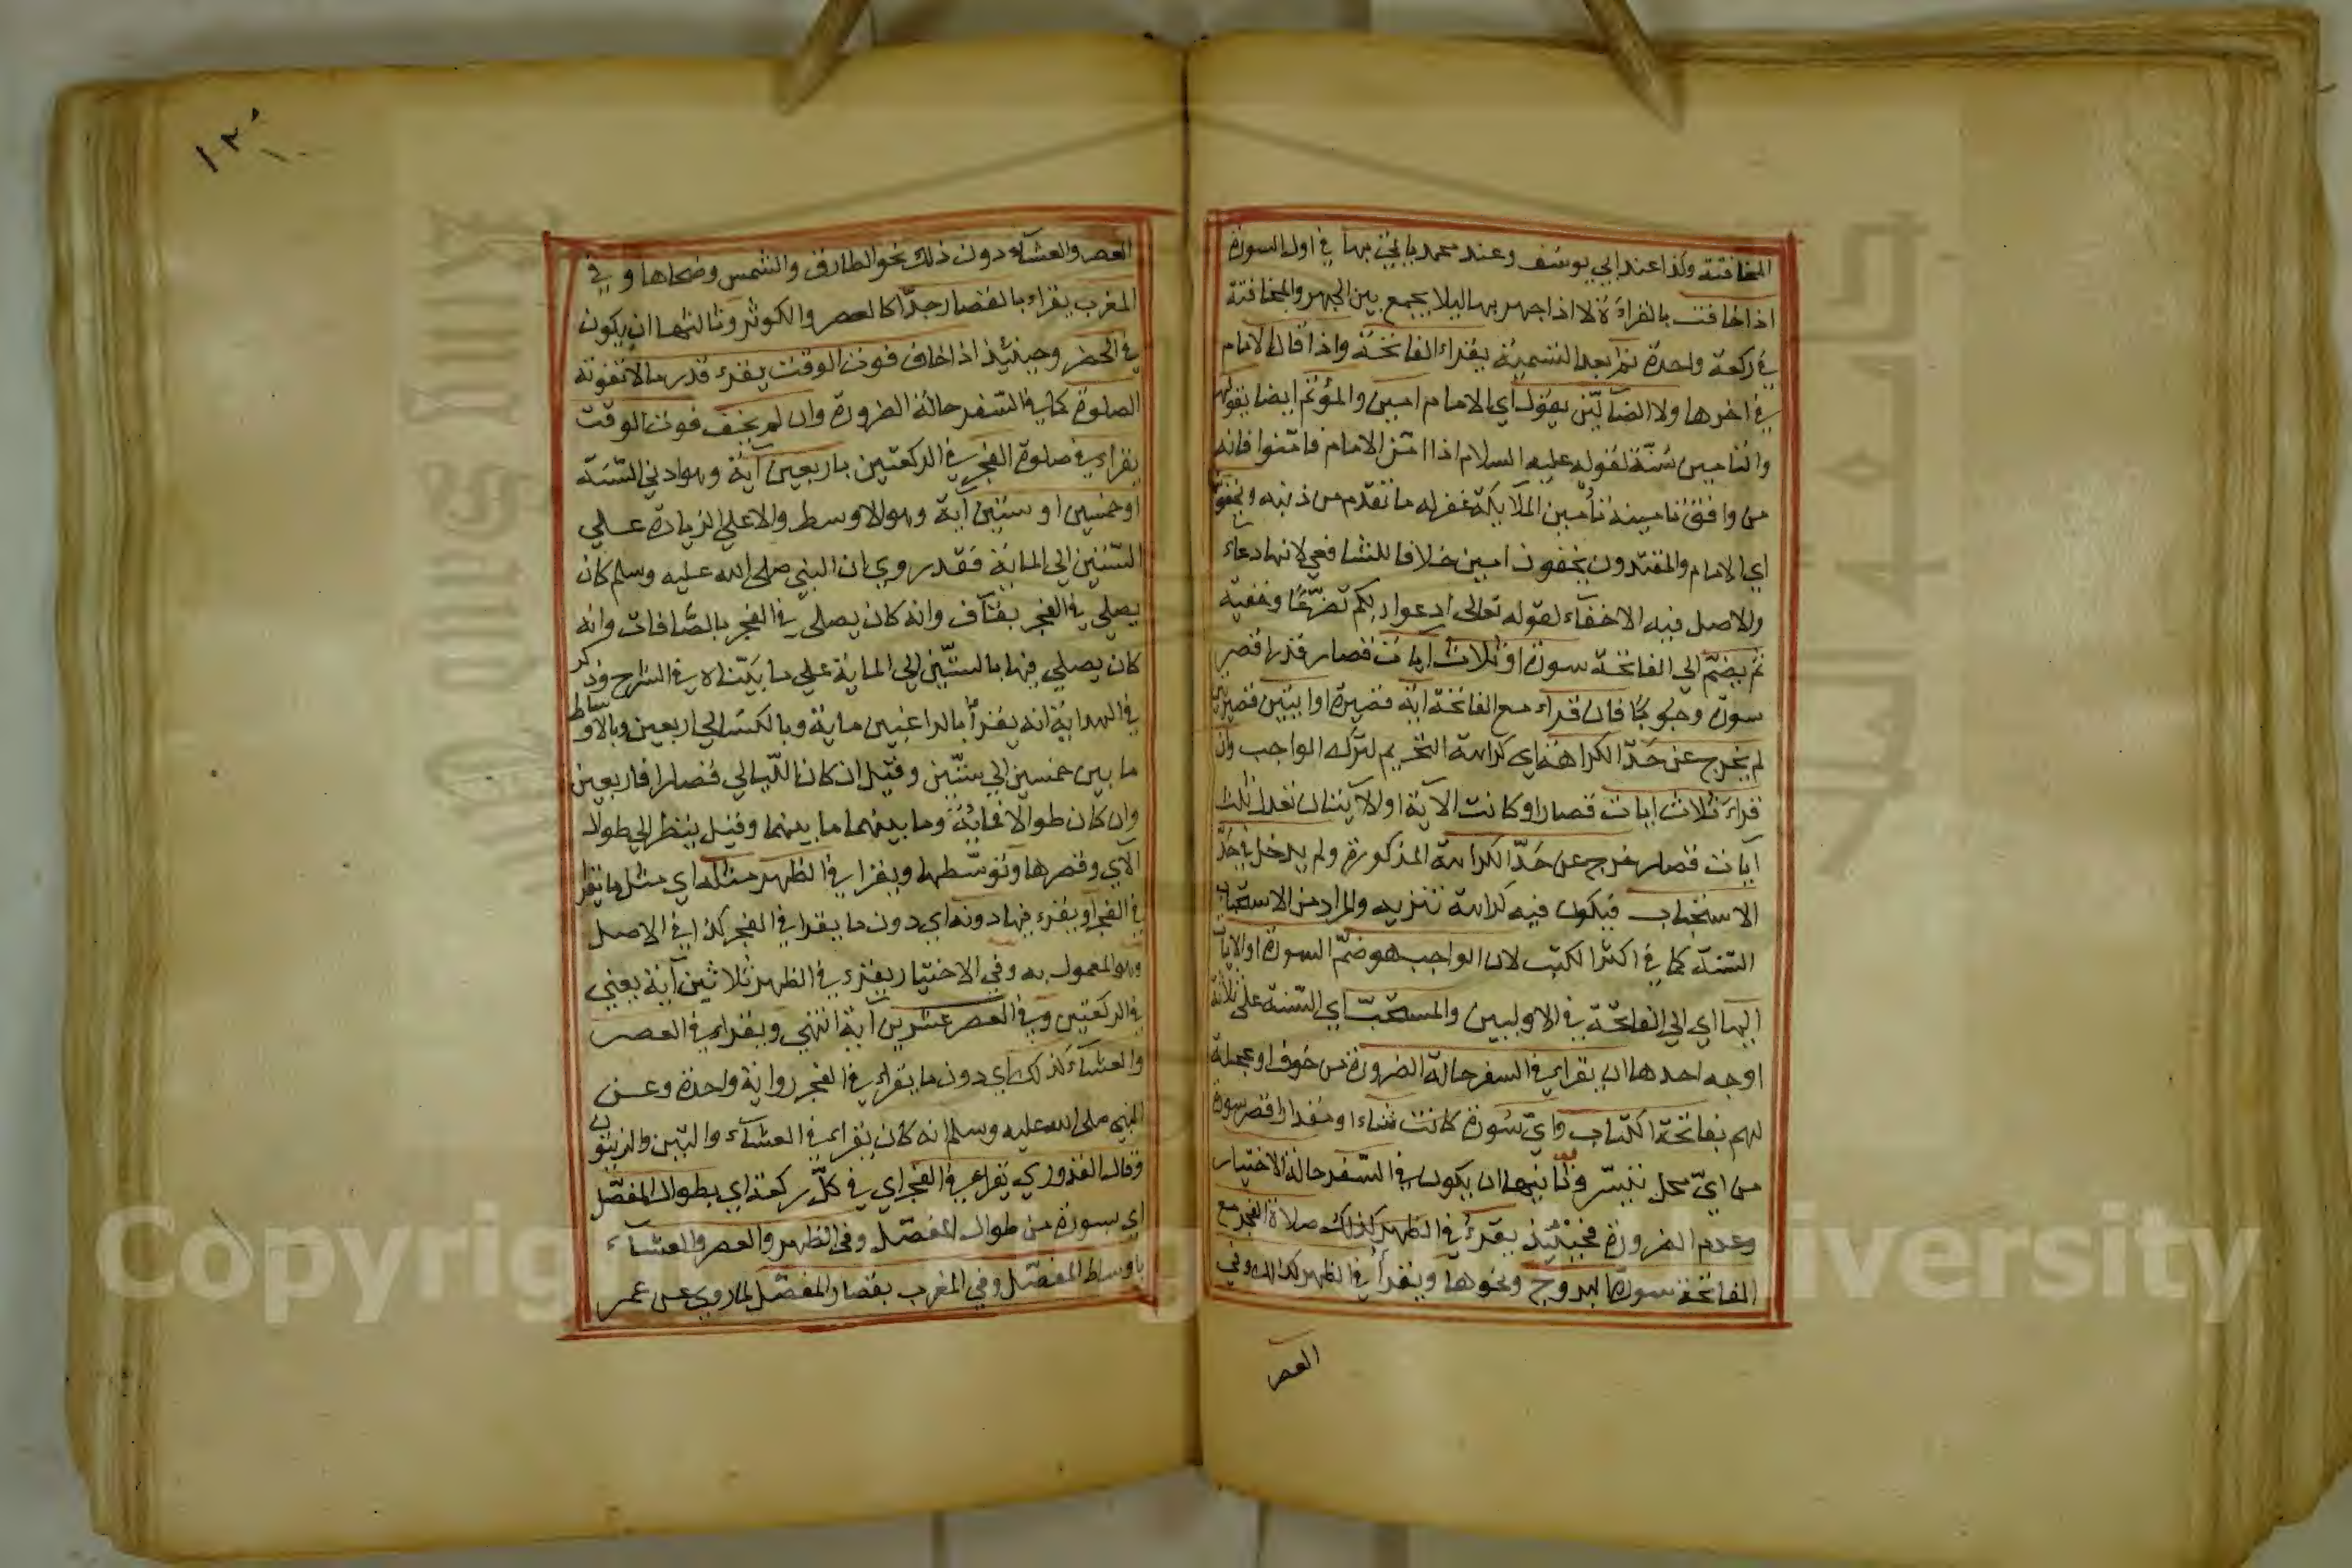 المخافتة وكذا عند ابي يوسف وعند محمد ياتي بها في اول السورة
اذا خافت بالقراءة لا اذا جهر بها ليلا يجمع بين الجهر والمخافتة
في ركعة واحدة ثم بعد التسمية يقراء الفاتحة واذا قال الامام
في اخرها ولا الضالين يقول اي الامام امين والمؤتم ايضا يقولها
والتامين سنة لقوله عليه السلام اذا امن الامام فامنوا فانه
من وافق تامينه تأمين الملائكة غفر له ما تقدم من ذنبه ويخفون
اي الامام والمقتدون يخفون امين خلافا للشافعي لانها دعاء
والاصل فيه الاخفاء لقوله تعالى ادعوا ربكم تضرعا وخفية
ثم يضم الى الفاتحة سورة او ثلاث ايات قصار قدر اقصر
سورة وجوبا فان قراء مع الفاتحة اية قصيرة او ايتين قصيرتين
لم يخرج عن حد الكراهة اي كراهة التحريم لترك الواجب وان
قراء ثلاث ايات قصارا وكانت الآية او الآيتان تعدل ثلث
آيات قصار خرج عن حد الكراهة المذكورة ولم يدخل في حد
الاستحباب فيكون فيه كراهة تنزيه والمراد من الاستحباب
السنة كما في اكثر الكتب لان الواجب هو ضم السورة او الايات
اليها اي الى الفاتحة في الاوليين والمستحب اي السنة على ثلاثة
اوجه احدها ان يقراء في السفر حالة الضرورة من خوف او عجلة
لهم بفاتحة الكتاب واي سورة كانت شاء او مقدار اقصر سورة
من اي محل تيسر وثانيها ان يكون في السفر حالة الاختيار
وعدم الضرورة فحينئذ يقرء في الظهر كذلك صلاة الفجر مع
الفاتحة سورة البروج ونحوها ويقرأ في الظهر كذلك وفي
العصر
العصر والعشاء دون ذلك نحو الطارق والشمس وضحاها وفي
المغرب يقراء بالقصار جدا كالعصر والكوثر وثالثها ان يكون
في الحضر وحينئذ اذا خاف فوت الوقت يقرء قدر ما لا تفوته
الصلوة كما في السفر حالة الضرورة وان لم يخف فوت الوقت
يقراء في صلوة الفجر في الركعتين باربعين آية وهو ادنى السنة
او خمسين او ستين آية وهو الاوسط والاعلى الزيادة على
الستين الى الماية فقد روي ان النبي صلى الله عليه وسلم كان
يصلي في الفجر بقاف وانه كان يصلي في الفجر بالصافات وانه
كان يصلي فيها بالستين الى الماية على ما بيناه في الشرح وذكر
في الهداية انه يقرأ بالراغبين ماية وبالكسالى اربعين وبالاوساط
ما بين خمسين الى ستين وقيل ان كان الليالي قصارا فاربعين
وان كان طوالا فماية وما بينهما ما بينهما وقيل ينظر الى طول
الآي وقصرها وتوسطها ويقرا في الظهر مثله اي مثل ما يقرا
في الفجر او يقرء فيها دونه اي دون ما يقرا في الفجر كذا في الاصل
وهو المعمول به وفي الاختيار يقرء في الظهر ثلاثين آية يعني
في الركعتين وفي العصر عشرين آية انتهى ويقراء في العصر
والعشاء كذلك اي دون ما يقراء في الفجر رواية واحدة وعن
النبي صلى الله عليه وسلم انه كان يقراء في العشاء والتين والزيتون
وقال القدوري يقراء في الفجر اي في كل ركعة اي بطوال المفصل
اي بسورة من طوال المفصل وفي الظهر والعصر والعشاء
باوساط المفصل وفي المغرب بقصار المفصل لما روي عن عمر